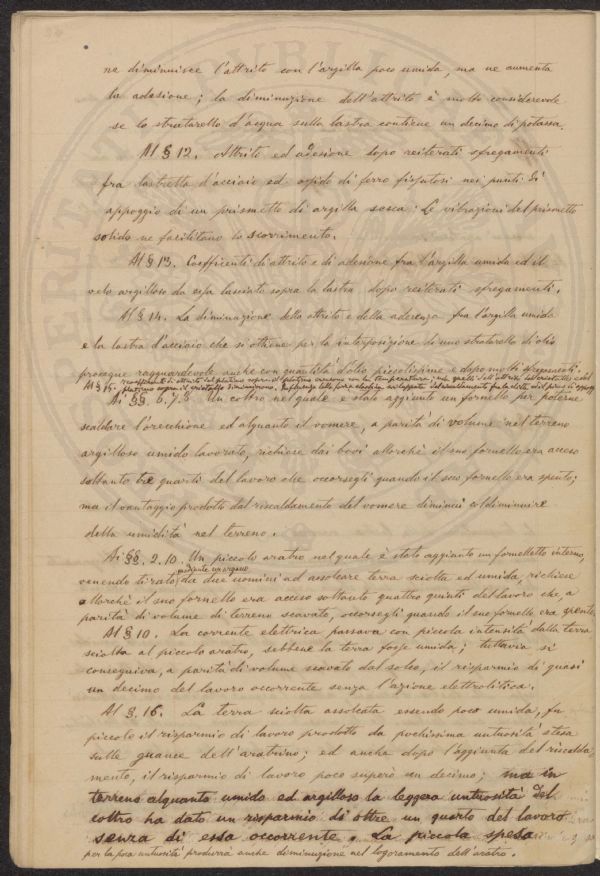 ne diminuisce l'attrito con l'argilla poco umida, ma ne aumenta
la adesione; la diminuzione dell'attrito è molto considerevole
se lo straterello d'acqua sulla lastra contiene un decimo di potassa.
Al § 12. Attrito ed adesione dopo reiterati sfregamenti
fra lastretta d'acciaio ed ossido di ferro nei punti di
appoggio di un prismetto di argilla secca. Le vibrazioni del prismetto
solido ne facilitano lo scorrimento.
Al § 13. Coefficienti di attrito e di adesione fra l'argilla umida ed il
velo argilloso da essa lasciato sopra la lastra dopo reiterati sfregamenti.
Al § 14. La diminuzione dello attrito e della aderenza fra l'argilla umida
e la lastra d'acciaio che si ottiene per la interposizione di uno straterello di olio
prosegue ragguardevole anche con quantità d'olio piccolissime e dopo molti sfregamenti.
Al § 15. I coefficienti di attrito del platino sopra il platino crescono con la temperatura; ma quelli dell'attrito
platino sopra di diminuiscono. Influenza della forza elastica sviluppata
Ai §§ 6.7.8. Un coltro nel quale è stato aggiunto un fornello per poterne
scaldare l'orecchione ed alquanto il vomere, a parità di volume nel terreno
argilloso umido lavorato, richiese dai bovi allorchè il suo fornello era acceso
soltanto tre quarti del lavoro che occorsegli quando il suo fornello era spento;
ma il vantaggio prodotto dal riscaldamento del vomere diminuì col diminuire
della umidità nel terreno.
Ai §§ 2.10. Un piccolo aratro nel quale è stato aggiunto un fornelletto interno,
mediante un argano
venendo tirato da due uomini ad assolcare terra sciolta ed umida, richiese
allorchè il suo fornello era acceso soltanto quattro quinti del lavoro che, a
parità di volume di terreno scavato, occorsegli quando il suo fornello era spento.
Al § 10. La corrente elettrica passava con piccola intensità dalla terra
sciolta al piccolo aratro, sebbene la terra fosse umida; tuttavia si
conseguiva, a parità di volume scavato dal solco, il risparmio di quasi
un decimo del lavoro occorrente senza l'azione elettrolitica.
Al §. 16. La terra sciolta assolcata essendo poco umida, fu
piccolo il risparmio di lavoro prodotto da pochissima untuosità stesa
sulle guance dell'aratrino; ed anche dopo l'aggiunta del riscalda
mento, il risparmio di lavoro poco superò un decimo; ma in
terreno alquanto umido ed argilloso la leggera untuosità del
coltro ha dato un risparmio di oltre un quarto del lavoro
senza di essa occorrente. La piccola spesa
per la poca untuosità produrrà anche diminuzione nel logoramento dell'aratro.